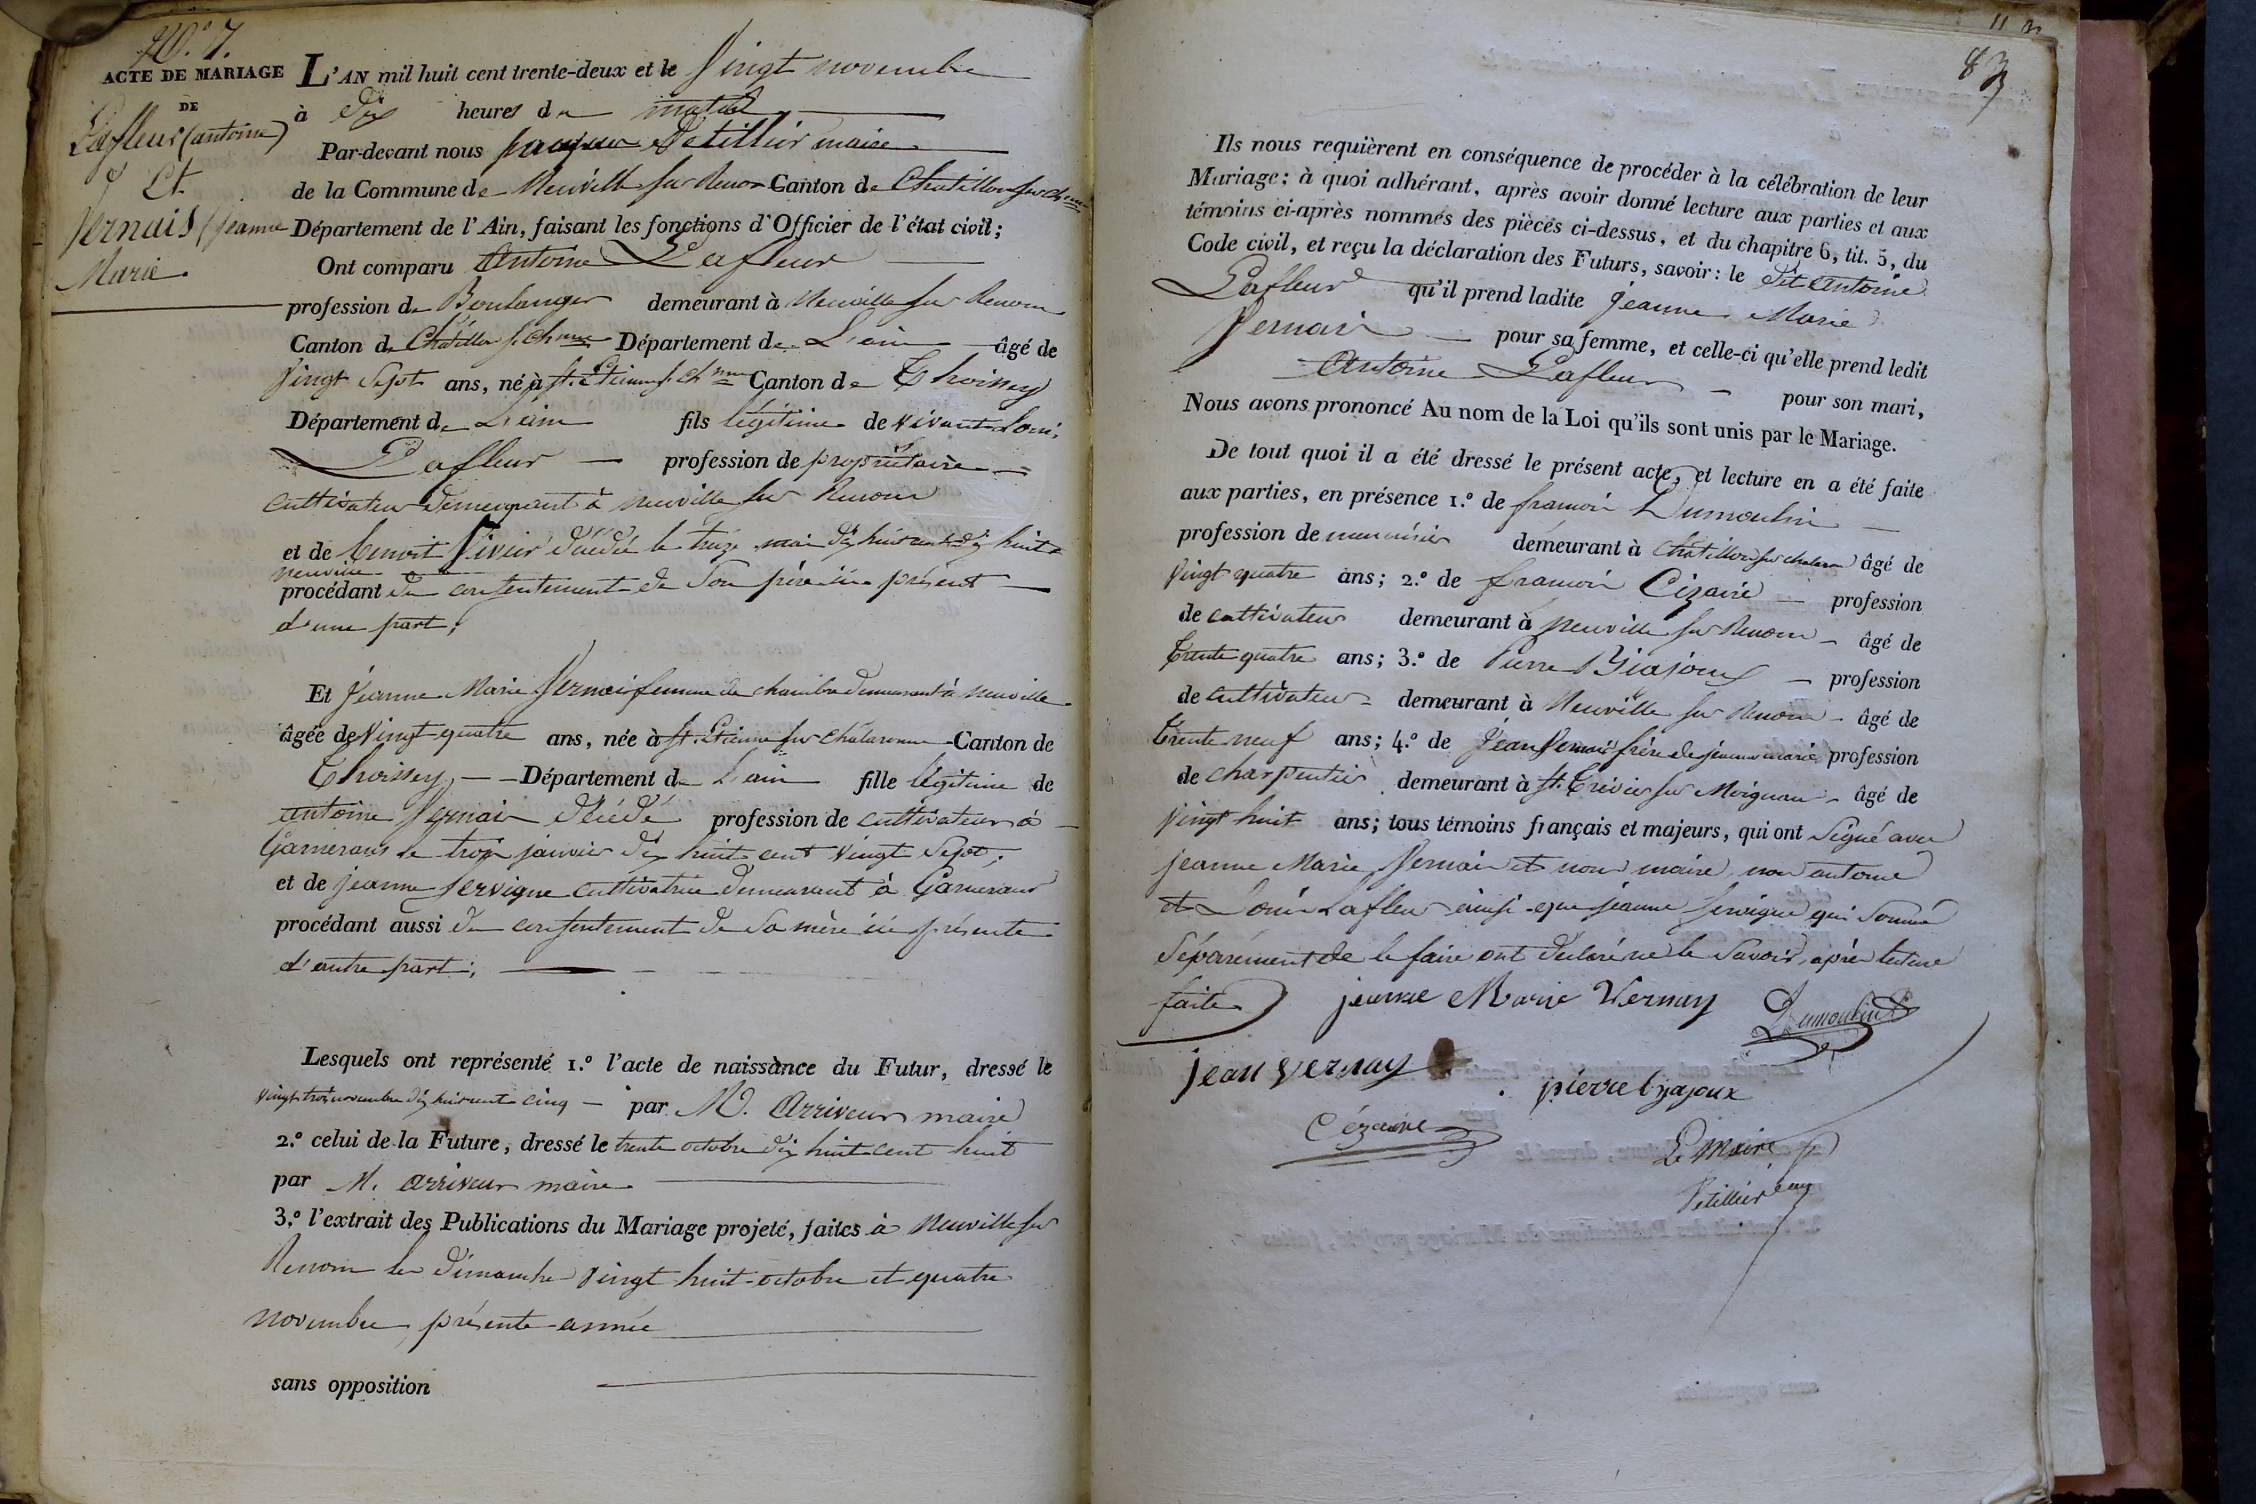 N.° 7.
ACTE DE MARIAGE
DE
Lafleur (antoine)
Et
Vernais (jeanne
Marie
L'AN mil huit cent trente-deux et le Vingt novembre
à dix heures du matin
Par-devant nous Petillier maire
de la Commune de Neuville sur Renon Canton de Chatillon sur Ch.nne
Département de l'Ain, faisant les fonctions d'Officier de l'état civil;
Ont comparu Antoine Lafleur
profession de Boulanger demeurant à Neuville sur Renom
Canton de Châtillon s. Ch.nne Département de L'ain âgé de
Vingt Sept ans, né à St. Etienne s. ch.nne Canton de Thoissey
Département de L'ain fils légitime de vivant Loui
Lafleur profession de propriétaire
cultivateur demeurant à neuville sur Renom
et de benoit Vivier décédé le treize mai dix huit cent dix huit à
neuville
procédant du consentement de Son père ici présent
d'une part;
Et Jeanne Marie Vernai femme de chambre demeurant à Neuville
âgée de Vingt quatre ans, née à St. Etienne sur Chalaronne Canton de
Thoissey Département de L'ain fille légitime de
antoine Vernai décédé profession de cultivateur à
Garnerans le trois janvier dix huit cent vingt Sept;
et de jeanne Servigne cultivatrice demeurant à Garnerans
procédant aussi du consentement de Sa mère ici présente
d'autre part;
Lesquels ont représenté 1.° l'acte de naissance du Futur, dressé le
vingt trois novembre dix huit cent cinq par M. Arriveur maire
2.° celui de la Future, dressé le trente octobre dix huit cent huit
par M. arriveur maire
3.° l'extrait des Publications du Mariage projeté, faites à Neuville sur
Renom les dimanche vingt huit octobre et quatre
novembre présente année
sans opposition
83
Ils nous requièrent en conséquence de procéder à la célébration de leur
Mariage; à quoi adhérant, après avoir donné lecture aux parties et aux
témoins ci-après nommés des pièces ci-dessus, et du chapitre 6, tit. 5, du
Code civil, et reçu la déclaration des Futurs, savoir: le dit Antoine
Lafleur qu'il prend ladite Jeanne Marie
Vernai pour sa femme, et celle-ci qu'elle prend ledit
Antoine Lafleur pour son mari,
Nous avons prononcé Au nom de la Loi qu'ils sont unis par le Mariage.
De tout quoi il a été dressé le présent acte, et lecture en a été faite
aux parties, en présence 1.° de francoi Dumoulin
profession de menuisier demeurant à Châtillon sur chalaron âgé de
Vingt quatre ans; 2.° de francoi Cizaire profession
de cultivateur demeurant à Neuville sur Renom âgé de
Trente quatre ans; 3.° de Pierre Biajoux profession
de cultivateur demeurant à Neuville sur Renom âgé de
Trente neuf ans; 4.° de Jean Vernai frère de jeanne marie profession
de charpentier demeurant à St. Trivier sur Moignan âgé de
Vingt huit ans; tous témoins français et majeurs, qui ont Signé avec
jeanne Marie Vernai et nou maire, non antoine
et Loui Lafleur ainsi que jeanne Servigne qui Sommé
Séparément de le faire ont déclaré ne le Savoir, après lecture
faite
jeanne Marie Vernay
Dumoulin
jean vernay
pierre byajoux
Cézaire
Le Maire
Petillier